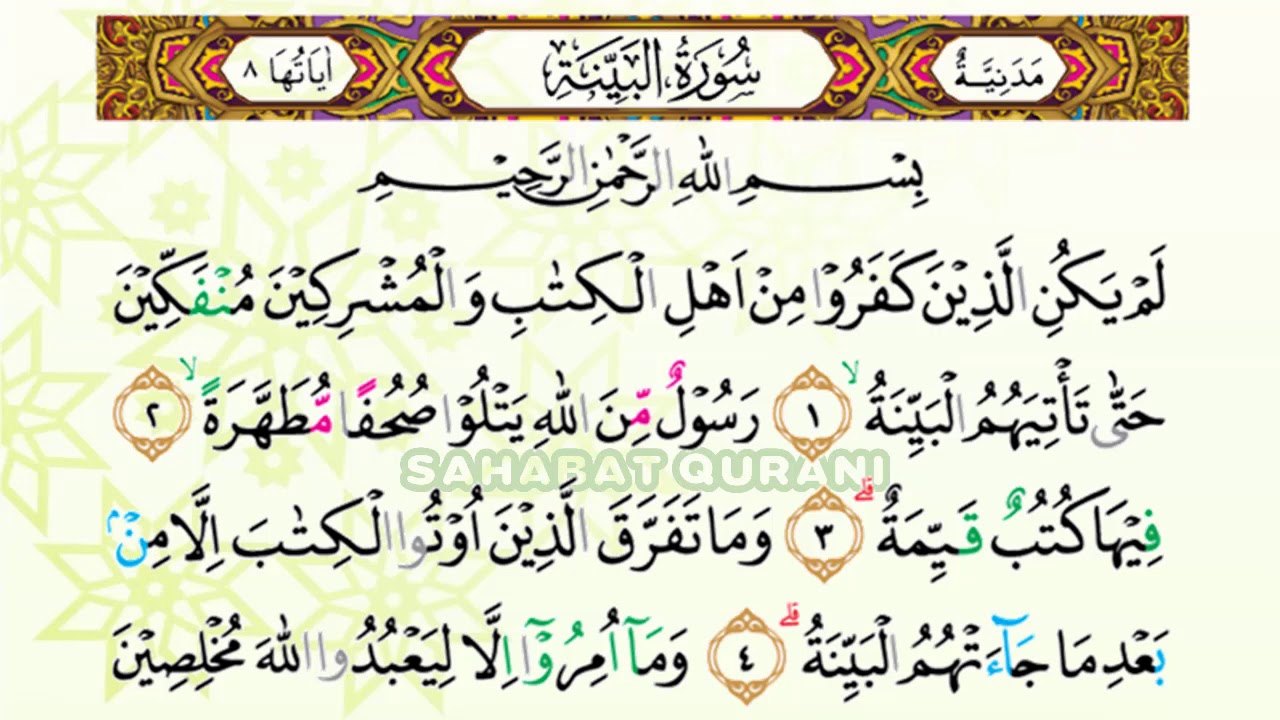 مَدَنِيَّةٌ سُوْرَةُ الْبَيِّنَةِ اٰيَاتُهَا ٨
بِسْــمِ اللهِ الرَّحْمٰنِ الرَّحِيْــمِ
لَمْ يَكُنِ الَّذِيْنَ كَفَرُوْا مِنْ اَهْلِ الْكِتٰبِ وَالْمُشْرِكِيْنَ مُنْفَكِّيْنَ
حَتّٰى تَأْتِيَهُمُ الْبَيِّنَةُۙ ١ رَسُوْلٌ مِّنَ اللهِ يَتْلُوْا صُحُفًا مُّطَهَّرَةًۙ ٢
SAHABAT QURANI
فِيْهَا كُتُبٌ قَيِّمَةٌۗ ٣ وَمَا تَفَرَّقَ الَّذِيْنَ اُوْتُوا الْكِتٰبَ اِلَّا مِنْۢ
بَعْدِ مَا جَاۤءَتْهُمُ الْبَيِّنَةُۗ ٤ وَمَآ اُمِرُوْٓا اِلَّا لِيَعْبُدُوا اللهَ مُخْلِصِيْنَ